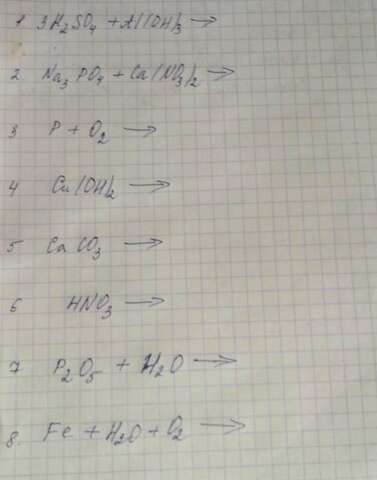 1 3H₂SO₄ + Al(OH)₃ →
2 Na₃PO₄ + Ca(NO₃)₂ →
3 P + O₂ →
4 Cu(OH)₂ →
5 CaCO₃ →
6 HNO₃ →
7 P₂O₅ + H₂O →
8. Fe + H₂O + O₂ →